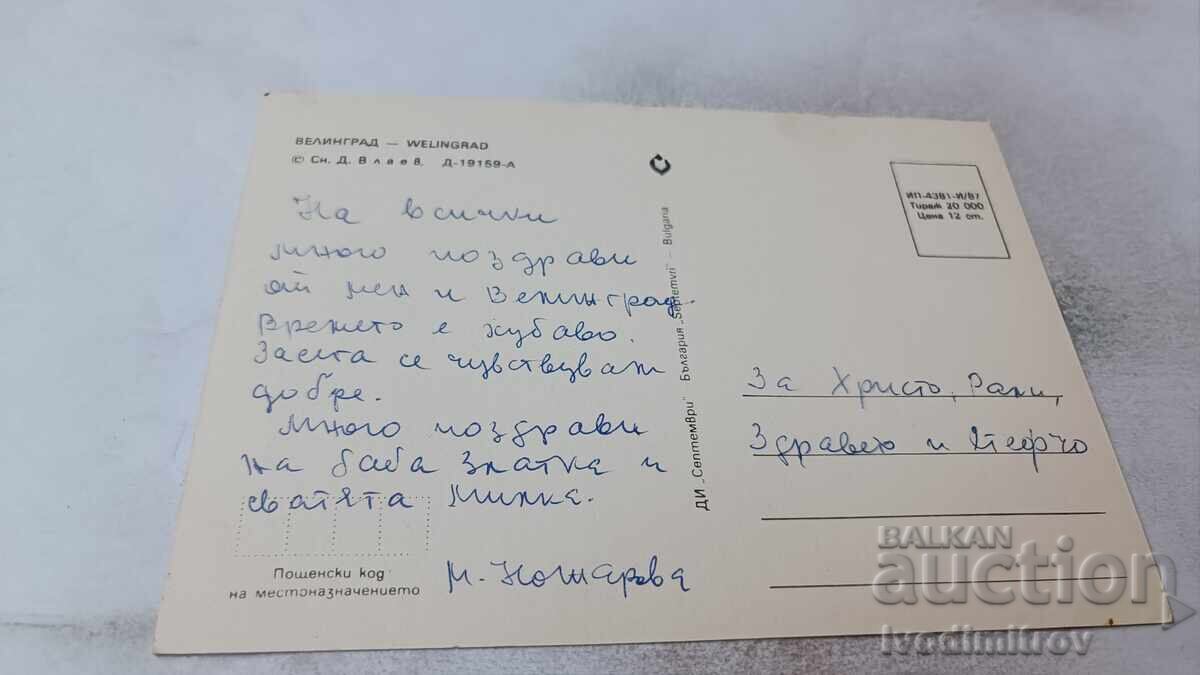 ВЕЛИНГРАД — WELINGRAD
© Сн. Д. Влаев. Д-19159-А
На всички
много поздрави
от мен и Велинград.
Времето е хубаво.
Засега се чувствувам
добре.
Много поздрави
на баба Златка и
сватята Минка.
М. Ножарова
Пощенски код
на местоназначението
ДИ „Септември" България „Septemvri" — Bulgaria
ИП-4381-И/87
Тираж 20 000
Цена 12 ст.
За Христо, Рали,
Здравею и Стефчо
BALKAN
auction
Ivodimitrov